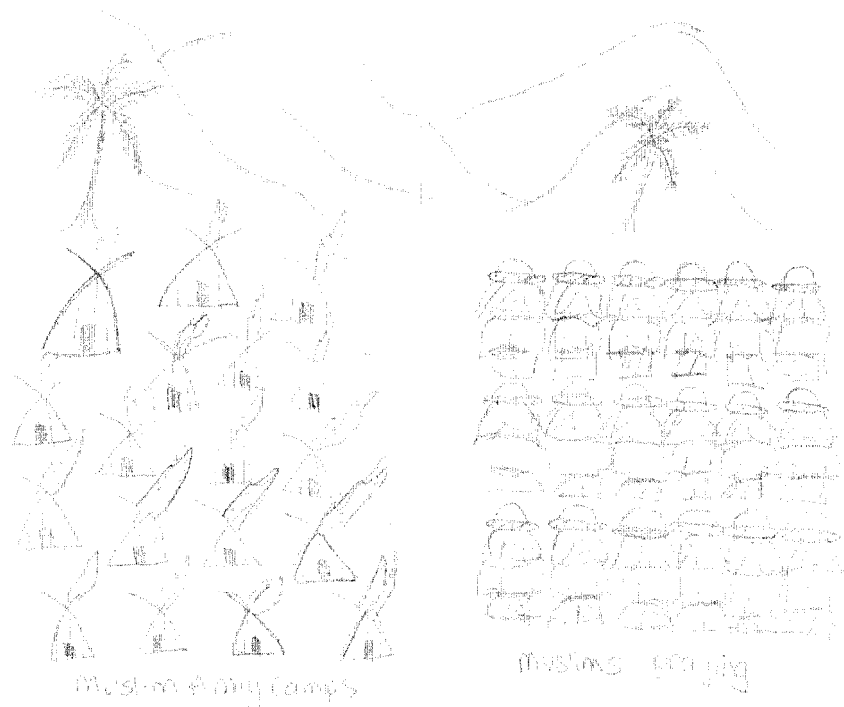 Muslim Army Camps
Muslims praying